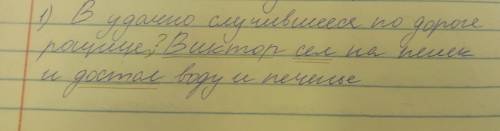 1) В удачно случившееся по дороге
рощице, Виктор сел на пенек
и достал воду и печенье